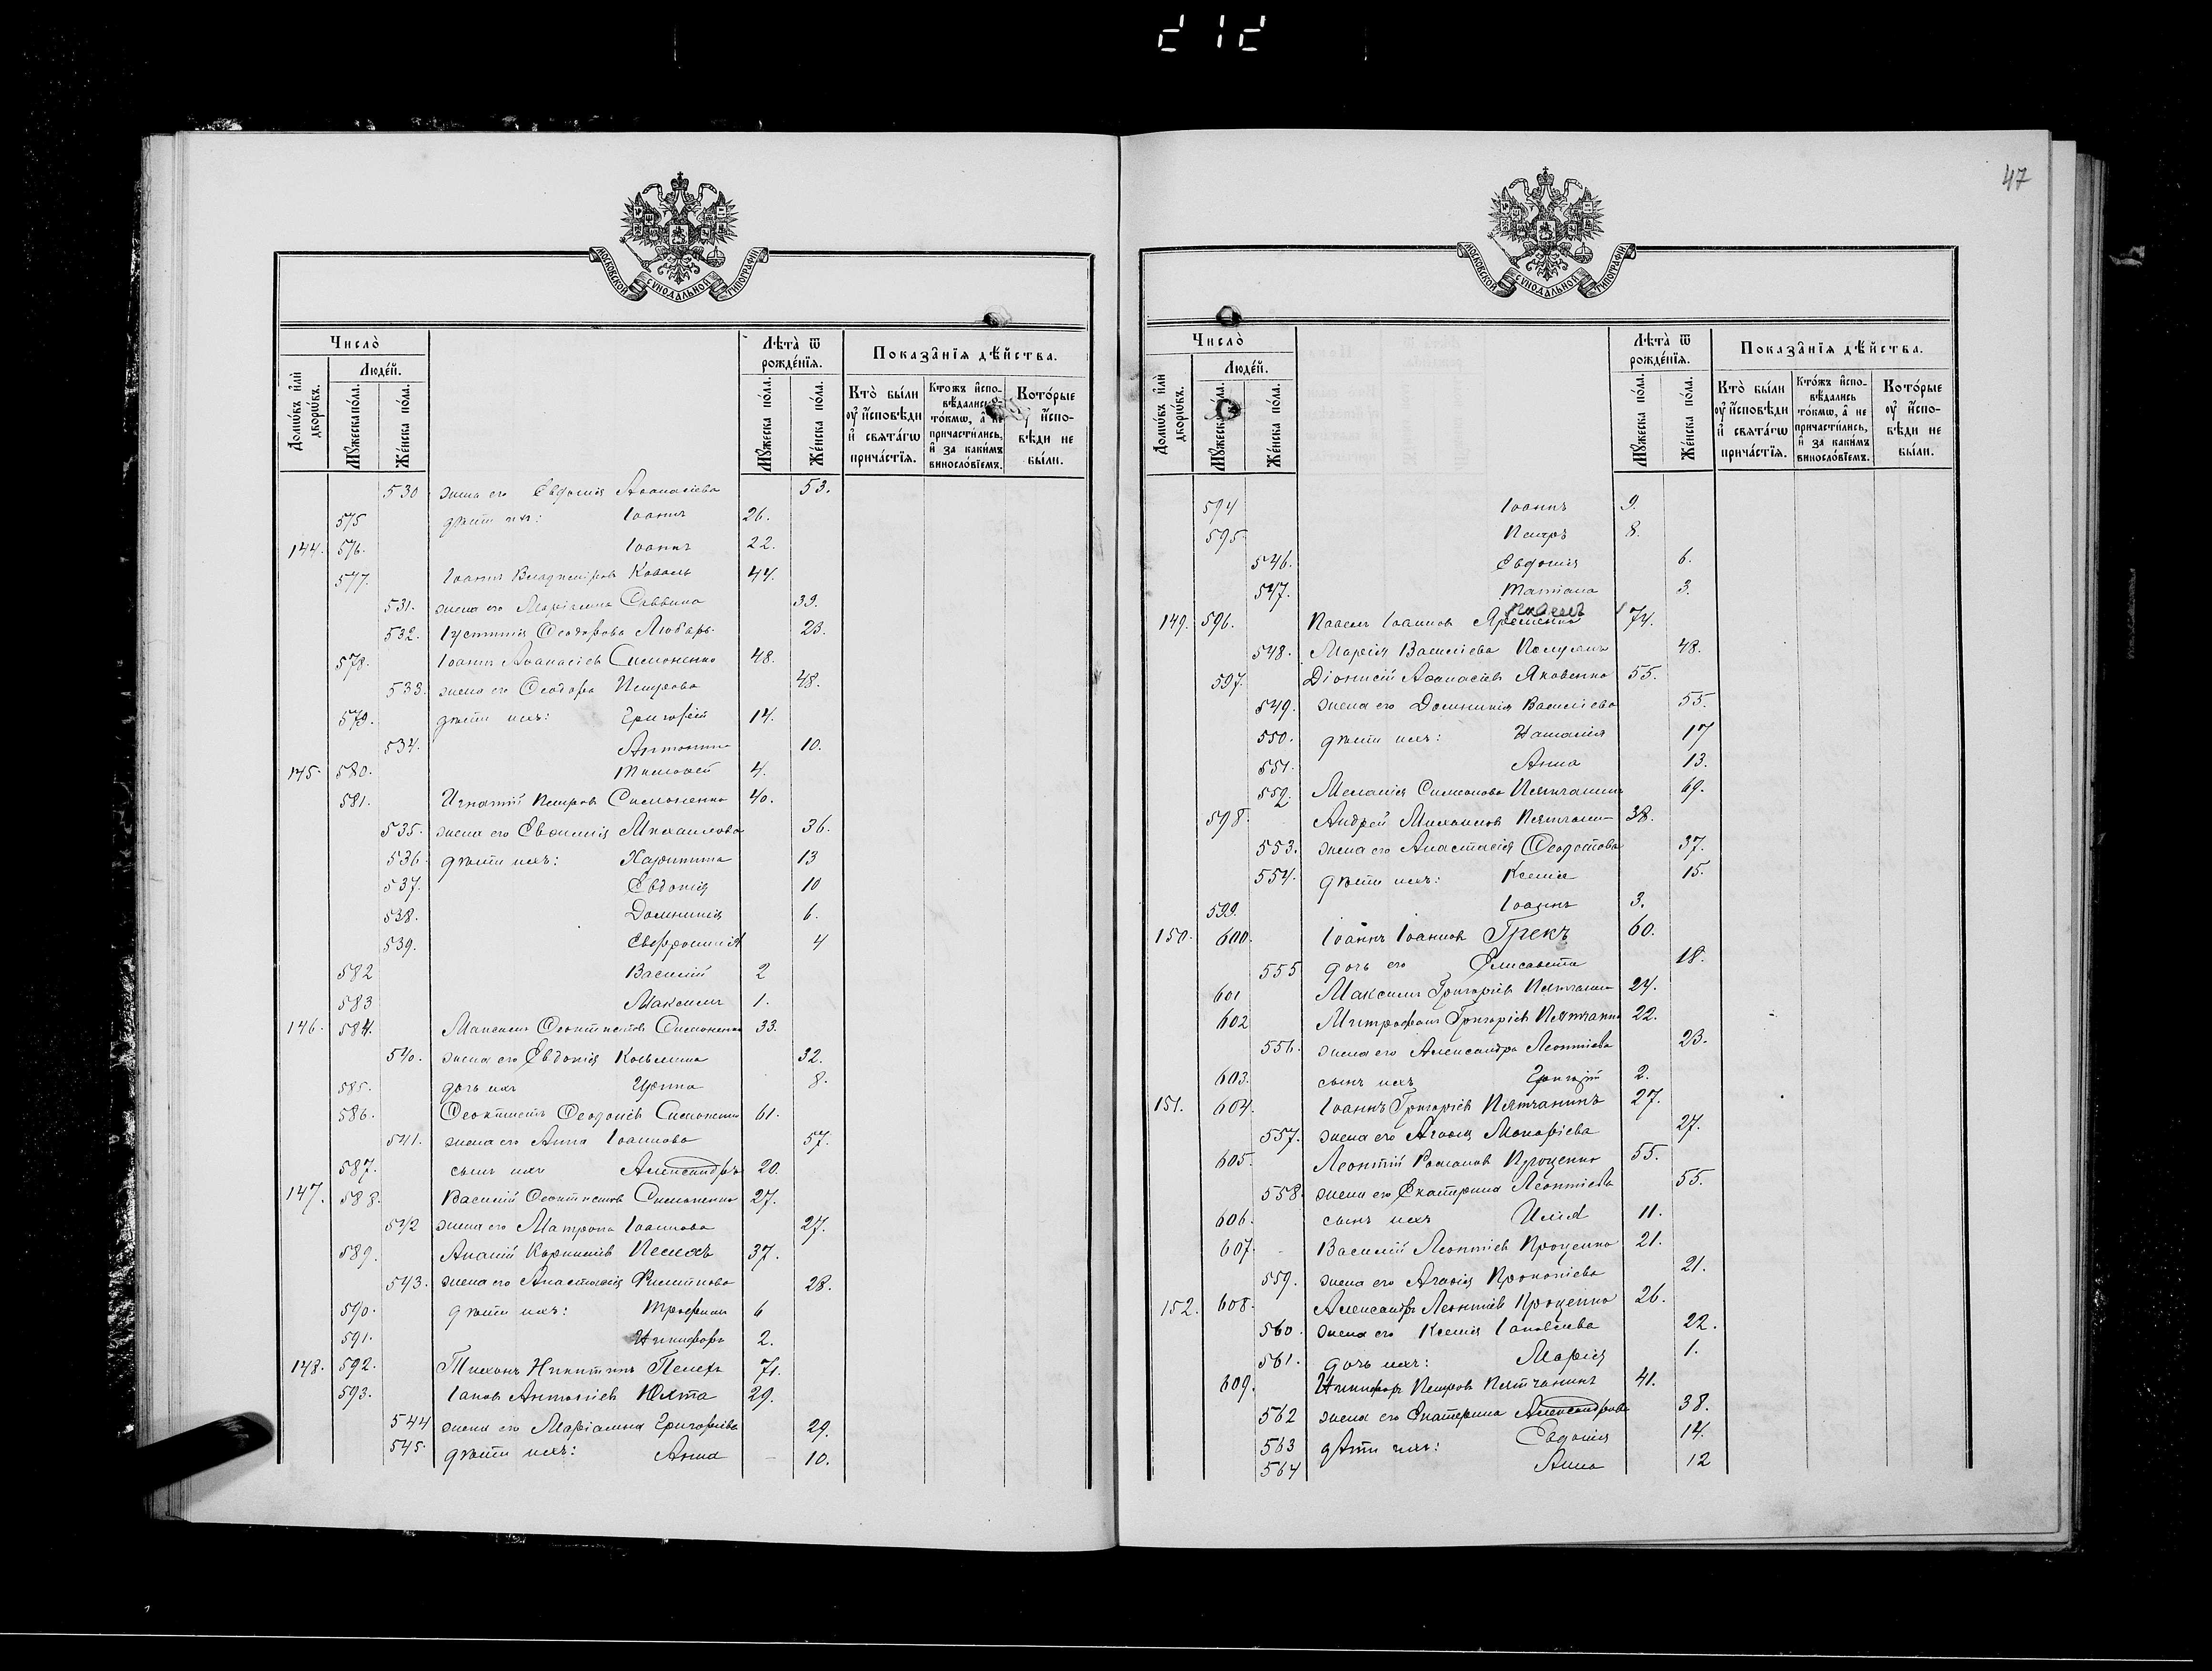 212
МОСКОВСКОЙ СУНОДАЛЬНОЙ ТИПОГРАФІИ
Число̀
Люде́й.
Домѡ́въ и҆лѝ дворѡ́въ.
Мꙋ́жеска по́ла.
Же́нска по́ла.
Лѣта̀ ѿ рожде́нїѧ.
Мꙋ́жеска по́ла.
Же́нска по́ла.
Показа̑нїѧ дѣ́йства.
Кто̀ бы́ли оу҆ и҆́сповѣди и҆ свѧта́гѡ прича́стїѧ.
Кто́жъ и҆спо-вѣ́дались то́кмѡ, а҆ не причасти́лись, и҆ за каки́мъ винослов́їемъ.
Кото́рые оу҆ и҆́спо-вѣди не бы́ли.
530 жена его Евдокія Аѳанасіева 53.
575 дѣти ихъ: Іоаннъ 26.
144. 576. Іоаннъ 22.
577. Іоаннъ Владиміровъ Коваль 44.
531. жена его Маріанна Саввина 39.
532. Іустинія Ѳеодорова Любарь 23.
578. Іоаннъ Аѳанасіевъ Симоненко 48.
533. жена его Ѳеодора Петрова 48.
579. дѣти ихъ: Григорій 14.
534. Антонина 10.
145. 580. Тимоѳей 4.
581. Игнатій Петровъ Симоненко 40.
535. жена его Евѳимія Михаилова 36.
536. дѣти ихъ: Харитина 13
537. Евдокія 10
538. Домникія 6.
539. Евфросинія 4
582 Василій 2
583 Максимъ 1.
146. 584. Максимъ Ѳеоктистовъ Симоненко 33.
540. жена его Евдокія Козьмина 32.
585. дочь ихъ Ирина 8.
586. Ѳеоктистъ Ѳеодосіевъ Симоненко 61.
541. жена его Анна Іоаннова 57.
587. сынъ ихъ Александръ 20.
147. 588. Василій Ѳеоктистовъ Симоненко 27.
542 жена его Матрона Іоаннова 27.
589. Ананій Корниліевъ Пелехъ 37.
543. жена его Анастасія Филиппова 28.
590. дѣти ихъ: Трофимъ 6
591. Никифоръ 2.
148. 592. Тихонъ Никитинъ Пелехъ 71.
593. Іаковъ Антоніевъ Юхта 29.
544 жена его Маріанна Григоріева 29.
545. дѣти ихъ: Анна - 10.
47
МОСКОВСКОЙ СУНОДАЛЬНОЙ ТИПОГРАФІИ
Число̀
Люде́й.
Домѡ́въ и҆лѝ дворѡ́въ.
Мꙋ́жеска по́ла.
Же́нска по́ла.
Лѣта̀ ѿ рожде́нїѧ.
Мꙋ́жеска по́ла.
Же́нска по́ла.
Показа̑нїѧ дѣ́йства.
Кто̀ бы́ли оу҆ и҆́сповѣди и҆ свѧта́гѡ прича́стїѧ.
Кто́жъ и҆спо-вѣ́дались то́кмѡ, а҆ не причасти́лись, и҆ за каки́мъ винослов́їемъ.
Кото́рые оу҆ и҆́спо-вѣди не бы́ли.
594 Іоаннъ 9.
595. Петръ 8.
546. Евдокія 6.
547. Татіана 3.
149. 596. Павелъ Іоанновъ Яременко 74.
548. Марія Василіева 48.
597. Діонисій Аѳанасіевъ Яковенко 55.
549. жена его Домникія Василіева 55.
550. дѣти ихъ: Наталія 17
551. Анна 13.
552. Меланія Симонова Пятчанина 69.
598. Андрей Михаиловъ Пятчанин 38.
553. жена его Анастасія Ѳеодотова 37.
554. дѣти ихъ: Ксенія 15.
599. Іоаннъ 3.
150. 600. Іоаннъ Іоанновъ Грекъ 60.
555 дочь его Елисавета 18.
601 Максимъ Григоріевъ Пятчанин 24.
602 Митрофанъ Григоріевъ Пятчанин 22.
556. жена его Александра Леонтіева 23.
603. сынъ ихъ Григорій 2.
151. 604. Іоаннъ Григоріевъ Пятчанинъ 27.
557. жена его Агаѳія Макаріева 27.
605. Леонтій Романовъ Проценко 55.
558. жена его Екатерина Леонтіева 55.
606. сынъ ихъ Илія 11.
607. Василій Леонтіевъ Проценко 21.
559. жена его Агаѳія Прокопіева 21.
152. 608. Александръ Леонтіевъ Проценко 26.
560. жена его Ксенія Іаковлева 22.
561. дочь ихъ: Марія 1.
609. Никифоръ Петровъ Пятчанинъ 41.
562 жена его Екатерина Александрова 38.
563 дѣти ихъ: Евдокія 14.
564 Анна 12